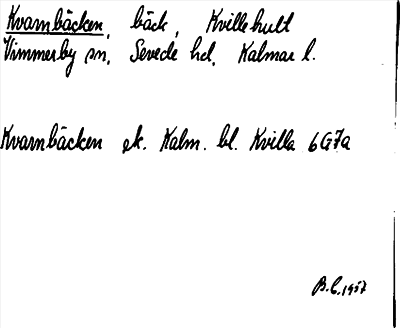 Kvarnbäcken, bäck, Kvillehult
Vimmerby sn, Sevede hd, Kalmar l.
Kvarnbäcken ek. Kalm. bl. Kvilla 6G7a
B.C. 1957